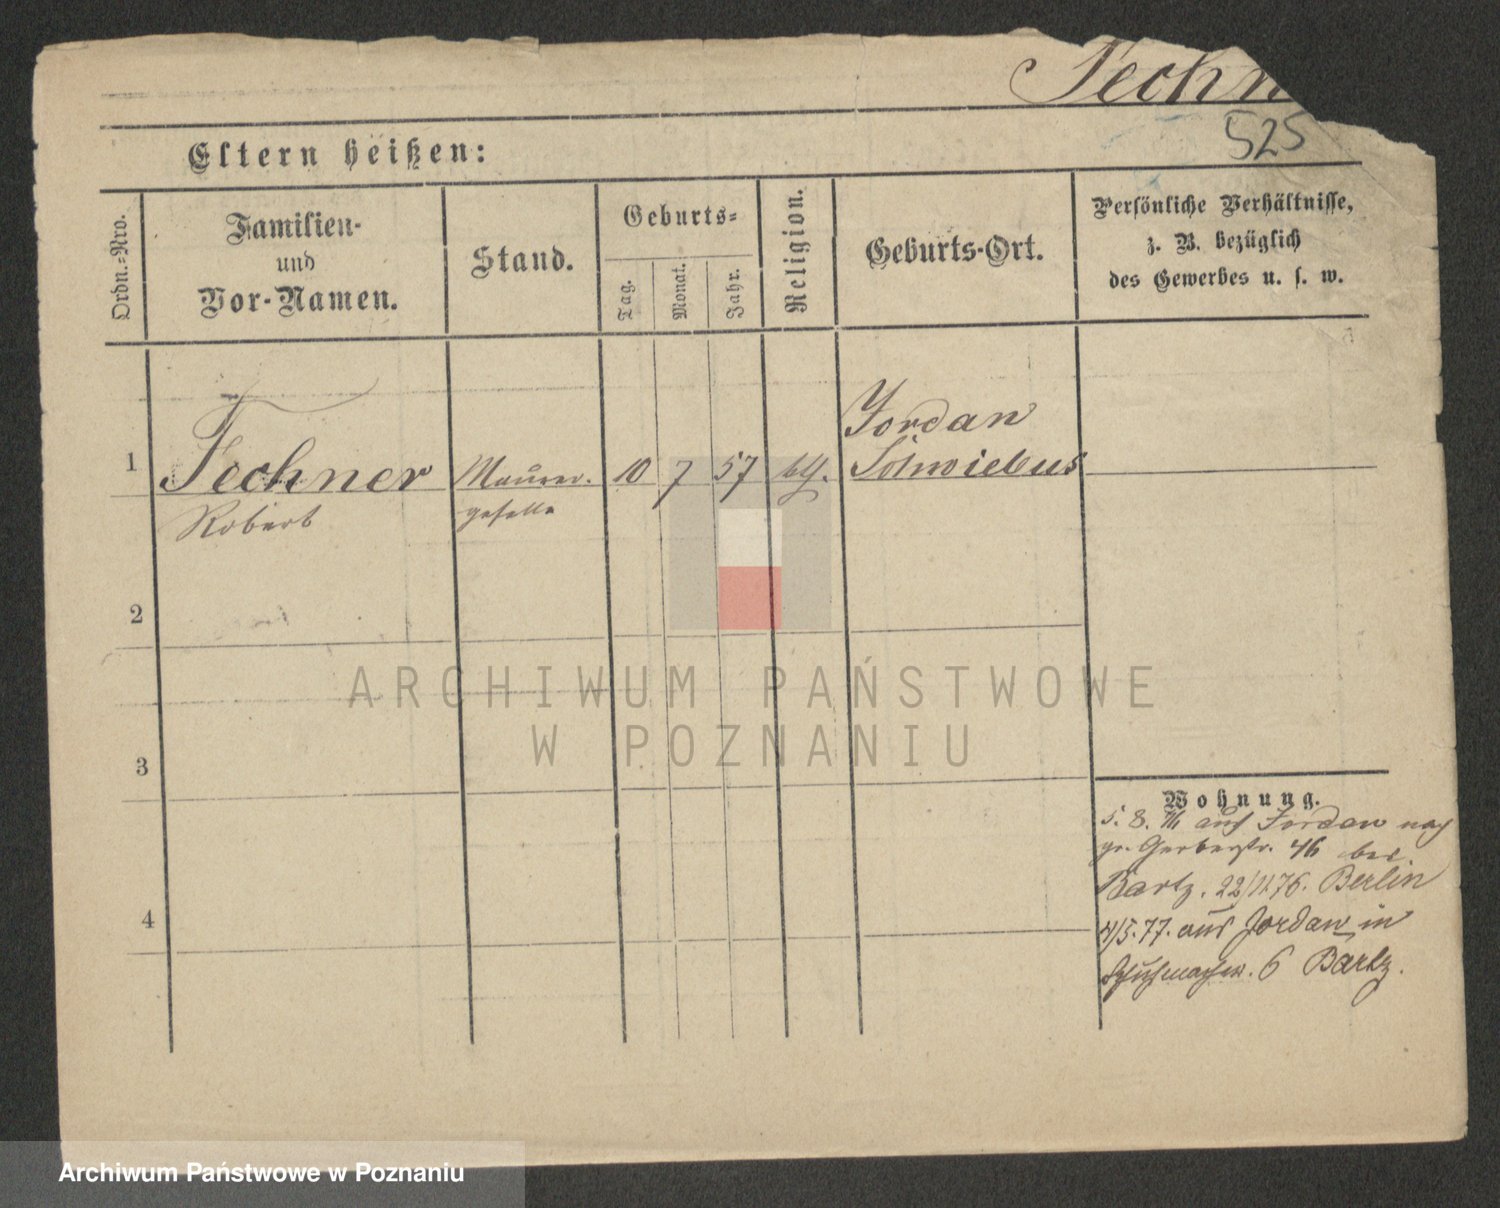 Fechn
525
Eltern heißen:
Ordn.-Nro.
Familien-
und
Vor-Namen.
Stand.
Geburts-
Tag.
Monat.
Jahr.
Religion.
Geburts-Ort.
Persönliche Verhältnisse,
z. B. bezüglich
des Gewerbes u. s. w.
1
Fechner
Robert
Maurer-
geselle
10
7
57
Jordan
Schwiebus
2
3
4
Wohnung.
5. 8. 76 aus Jordan nach
gr. Gerberstr. 46 bei
Bartz. 22/11 76. Berlin
4/5. 77. aus Jordan in
Schuhmacher. 6 Bartz.
ARCHIWUM PAŃSTWOWE
W POZNANIU
Archiwum Państwowe w Poznaniu